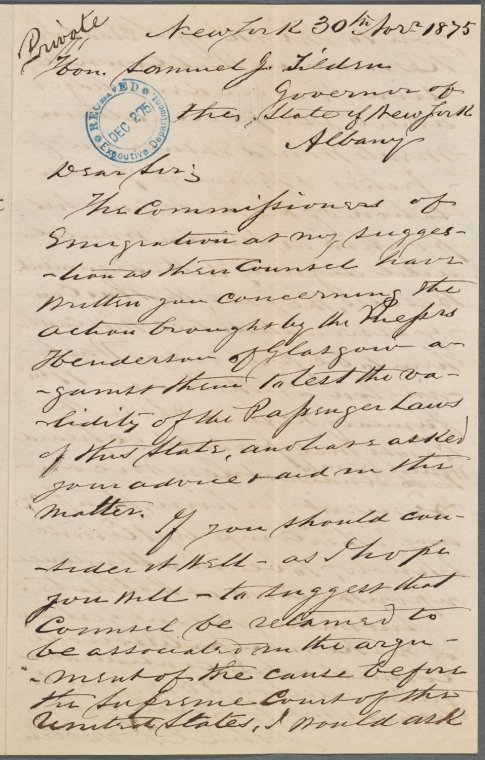 Private
New York 30th Novr 1875
Hon. Samuel J. Tilden
Governor of
the State of New York
Albany
RECEIVED
DEC 2 75
Executive Department
Dear Sir;
The Commissioners of
Emigration at my sugges-
-tion as their Counsel have
written you concerning the
action brought by the Messrs
Henderson of Glasgow a-
-gainst them to test the va-
-lidity of the Passenger Laws
of this State, and have asked
your advice & aid in the
matter.
If you should con-
-sider it well - as I hope
you will - to suggest that
Counsel be retained to
be associated in the argu-
-ment of the cause before
the Supreme Court of the
United States, I would ask